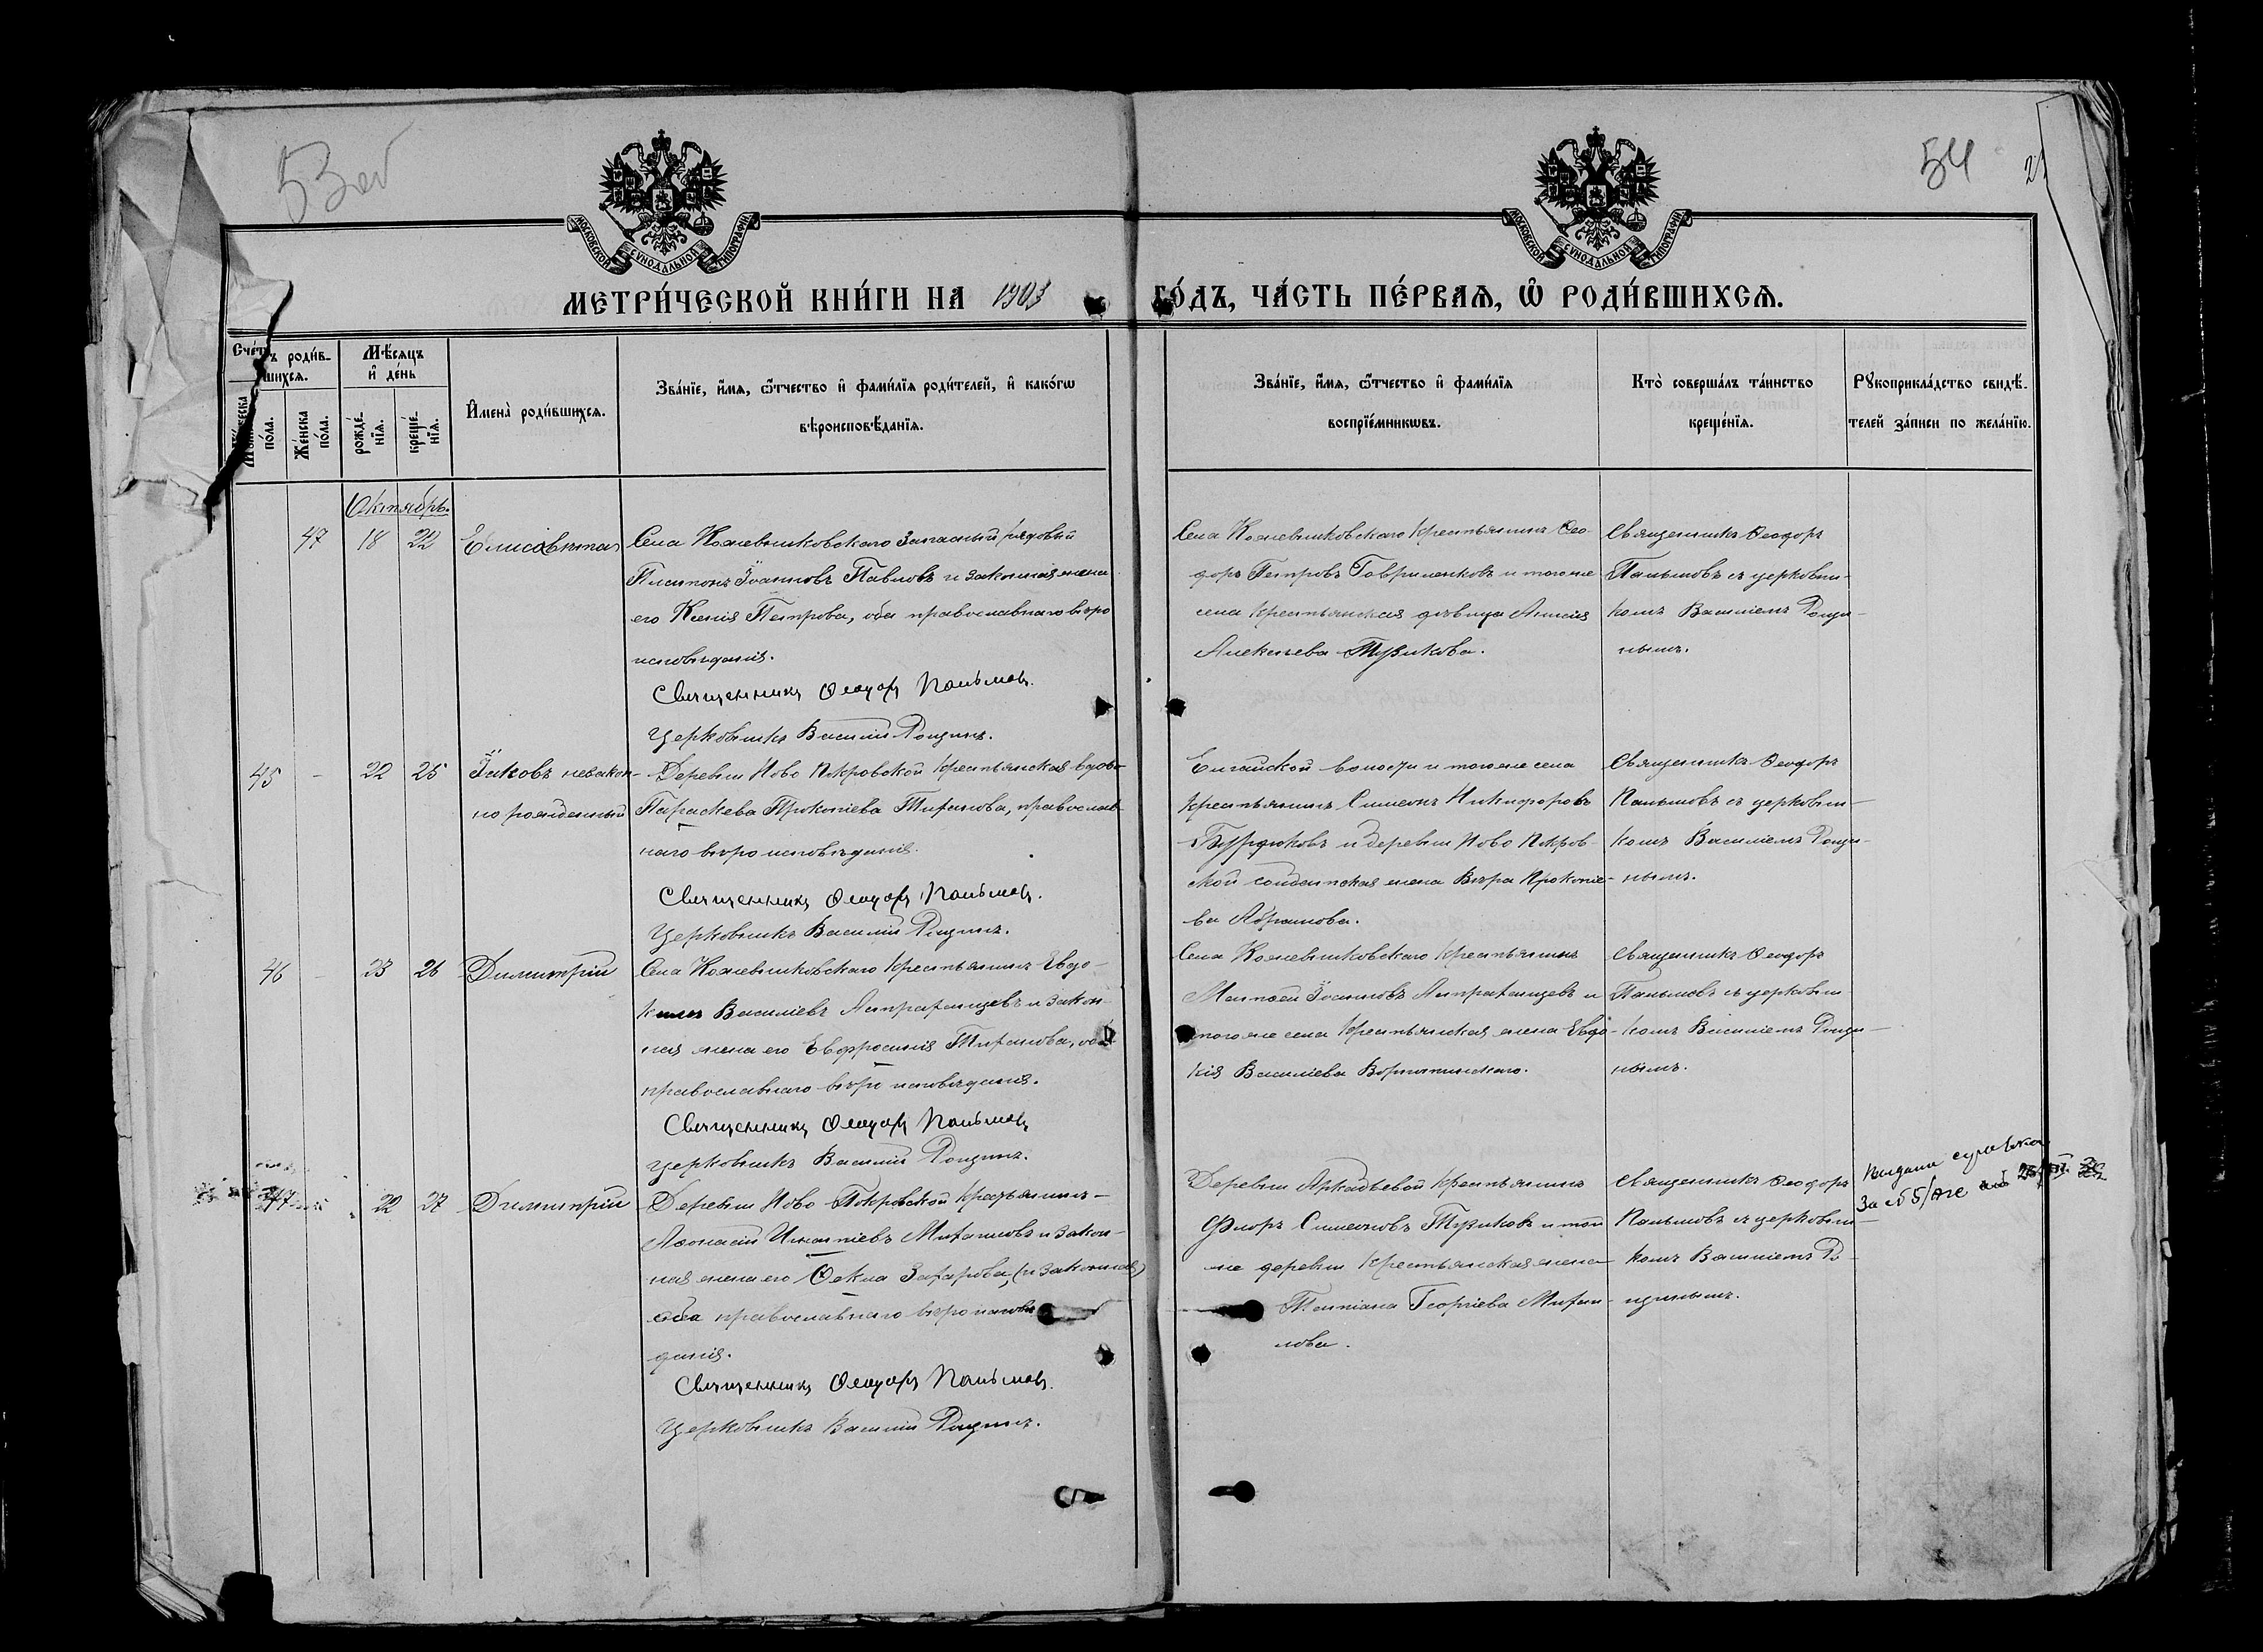 53 об
54
МОСКОВСКОЙ СѴНОДАЛЬНОЙ ТИПОГРАФІИ
МОСКОВСКОЙ СѴНОДАЛЬНОЙ ТИПОГРАФІИ
МЕТРИ́ЧЕСКОЙ КНИ́ГИ НА 1903 ГО́ДЪ, ЧА́СТЬ ПЕ́РВАѦ, Ѡ҆ РОДИ́ВШИХСѦ.
Сче́тъ роди́в-
шихсѧ.
Му́жеска
по́ла.
Же́нска
по́ла.
Мѣ́сѧцъ
и҆ де́нь
рожде́-
нїѧ.
креще́-
нїѧ.
И҆мена̀ роди́вшихсѧ.
Зва́нїе, и҆́мѧ, ѻ҆́тчество и҆ фами́лїѧ роди́телей, и҆ како́гѡ
вѣроисповѣ́данїѧ.
Зва́нїе, и҆́мѧ, ѻ҆́тчество и҆ фами́лїѧ
воспрїе́мникѡвъ.
Кто̀ соверша́лъ та́инство
креще́нїѧ.
Рꙋкоприкла́дство свидѣ́-
телей за́писи по жела́нїю.
Октябрь.
47 18 22 Елисавета
Села Кожевниковскаго запасный рядовый
Платонъ Іоанновъ Павловъ и законная жена
его Ксенія Петрова, оба православнаго вѣро
исповѣданія.
Священникъ Ѳеодоръ Пальмовъ.
Церковникъ Василій Рощинъ.
Села Кожевниковскаго крестьянинъ Ѳео-
доръ Петровъ Гавриленковъ и того же
села крестьянская дѣвица Анисія
Алексѣева Тузикова.
Священникъ Ѳеодоръ
Пальмовъ съ церковни-
комъ Василіемъ Рощи-
нымъ.
45 - 22 25 Іаковъ незакон-
но рожденный
Деревни Ново Покровской крестьянская вдова
Параскева Прокопіева Тиханова, православ-
наго вѣро исповѣданія.
Священникъ Ѳеодоръ Пальмовъ.
Церковникъ Василій Рощинъ.
Елгайской волости и того же села
крестьянинъ Симеонъ Никифоровъ
Бурдюковъ и деревни Ново Покров-
ской солдатская жена Вѣра Прокопіе-
ва Абрамова.
Священникъ Ѳеодоръ
Пальмовъ съ церковни-
комъ Василіемъ Рощи-
нымъ.
46 - 23 26 Димитрій
Села Кожевниковскаго крестьянинъ Евдо-
кимъ Василіевъ Астраханцевъ и закон-
ная жена его Евфросинія Тиханова, оба
православнаго вѣро исповѣданія.
Священникъ Ѳеодоръ Пальмовъ
Церковникъ Василій Рощинъ.
Села Кожевниковскаго крестьянинъ
Матѳей Іоанновъ Астраханцевъ и
того же села крестьянская жена Евдо-
кія Василіева
Священникъ Ѳеодоръ
Пальмовъ съ церковни-
комъ Василіемъ Рощи-
нымъ.
47 22 27 Димитрій
Деревни Ново-Покровской крестьянинъ-
Аѳонасій Игнатіевъ Михайловъ и закон-
ная жена его Ѳекла Захарова, (и законная)
оба православнаго вѣро исповѣ
данія.
Священникъ Ѳеодоръ Пальмовъ.
Церковникъ Василій Рощинъ.
Деревни Аркадьевой крестьянинъ
Флоръ Симеоновъ Тузиковъ и той
же деревни крестьянская жена
Татіана Георгіева Михай-
лова.
Священникъ Ѳеодоръ
Пальмовъ съ церковни-
комъ Василіемъ Ро-
щинымъ.
Выдана справка